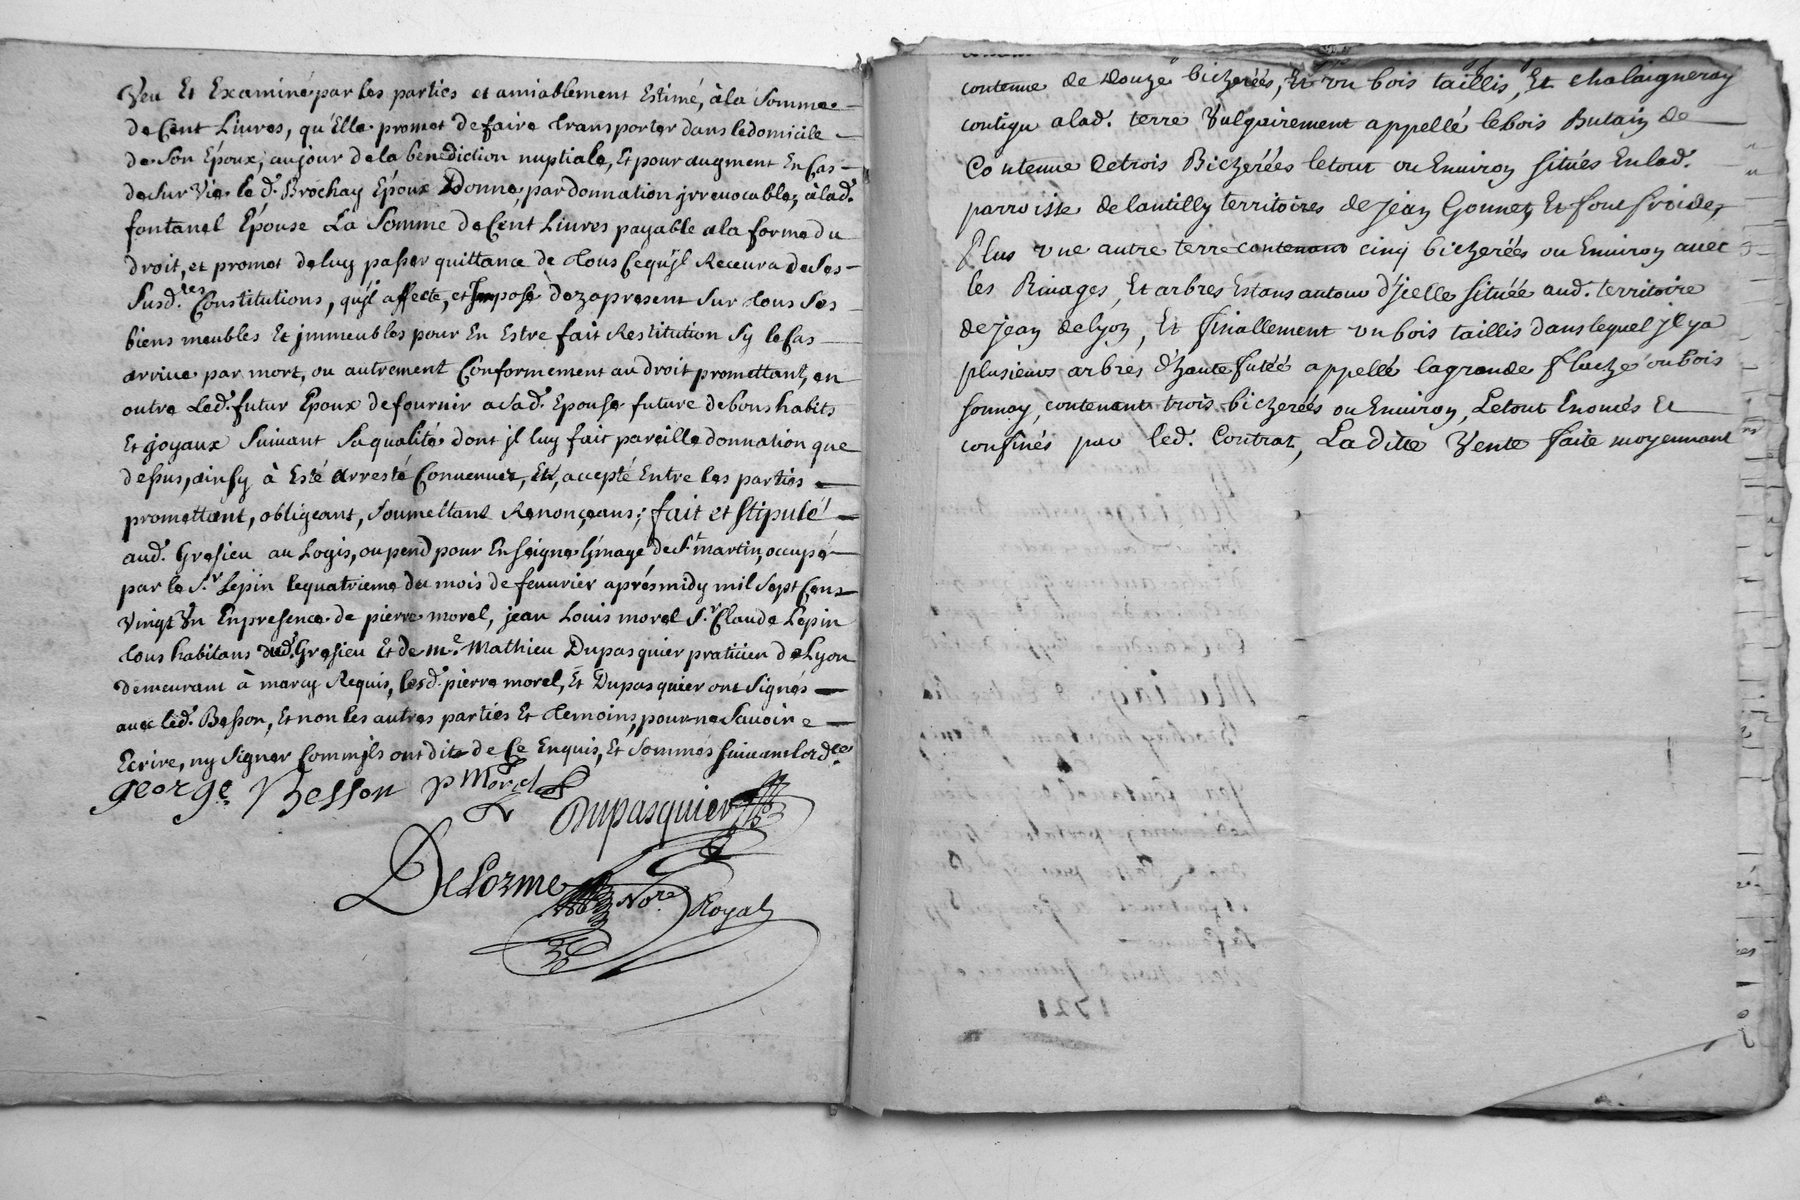 Veu Et Examiné par les parties et amiablement Estimé, à la somme
de Cent Livres, qu'Elle promet de faire transporter dans le domicile
de son Epoux, au jour de la benediction nuptiale, Et pour augment En Cas
de survie le d. Brochay Epoux Donne, par donnation irrevocable, à lad.
fontanel Epouse La Somme de Cent Livres payable a la forme du
droit, et promet de luy passer quittance de tous Ce qu'jl Recevra de ses
susd.tes Constitutions, qu'jl affecte, et Impose dez apresent sur tous ses
biens meubles Et jmmeubles pour En Estre fait Restitution Sy le Cas
arrive par mort, ou autrement Conformement au droit promettant, en
outre Led. futur Epoux de fournir a sad. Epouse future de bons habits
Et joyaux Suivant Sa qualité dont jl luy fait pareille donnation que
dessus, ainsy à Esté arresté Convenuë, Et, accepté Entre les parties
promettant, obligeant, soumettant Renonçeans; fait et stipulé
aud. Gresieu au Logis, ou pend pour Enseigne L'jmage de St martin, occupé
par le Sr Lepin le quatrieme du mois de fevvrier aprés midy mil sept Cens
vingt Un En presence de pierre morel, jean Louis morel Sr Claude Lepin
tous habitans dud. Gresieu Et de me Mathieu Dupasquier praticien de Lyon
demeurant à marcy Requis, lesd. pierre morel, Et Dupasquier ont Signés
avec led. Besson, Et non les autres parties Et temoins, pour ne Savoir
Ecrire, ny signer Comm'jls ont dit de Ce Enquis, Et Sommés suivant lord.ce
george Besson P Morel
Dupasquier
DeLorme Nore Royal
contenue de Douze bicherées, Et un bois taillis, Et chataigneray
contigu a lad. terre Vulgairement appellé le bois Butain de
Contenue de trois Bicherées le tout ou Environ situés En lad.
parroisse de lantilly territoires de jean Gonnet, Et font froide,
Plus une autre terre contenant cinq bicherées ou Environ avec
les Rivages, Et arbres Estans autour d'jcelle située aud. territoire
de jean de lyon, Et finallement un bois taillis dans lequel jl y a
plusieurs arbres d'haute futée appellé la grande flache ou bois
sonnay, contenant trois bicherées ou Environ, Le tout Enoncés Et
confinés par led. Contrat, La ditte Vente faite moyennant
1721